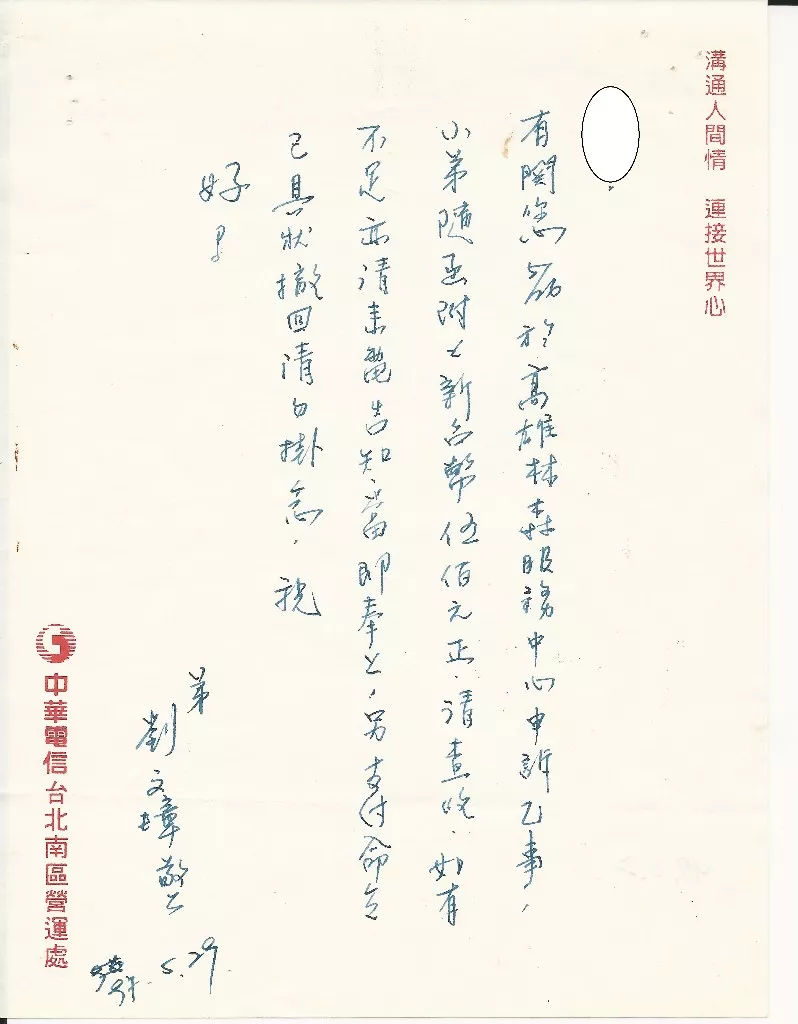 溝通人間情　連接世界心
有關您㕥於高雄林森服務中心申訴乙事，
小弟隨函附上新台幣伍佰元正．請查收．如有
不足亦請來電告知．當即奉上，另支付命令
已具狀撤回請勿掛念，祝
好！
弟
劉文璋敬上
5.29.
中華電信台北南區營運處